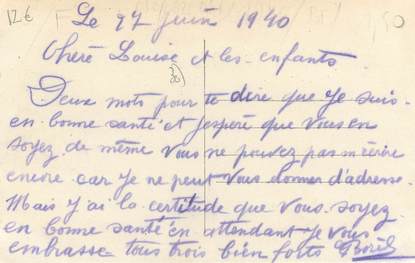 12€
Le 27 Juin 1940
Chère Louise et les enfants
Deux mots pour te dire que je suis
en bonne santé et j'espère que vous en
soyez de même vous ne pouvez pas m'écrire
encore car je ne peut vous donner d'adresse
Mais j'ai la certitude que vous soyez
en bonne santé en attendant je vous
embrasse tous trois bien forts